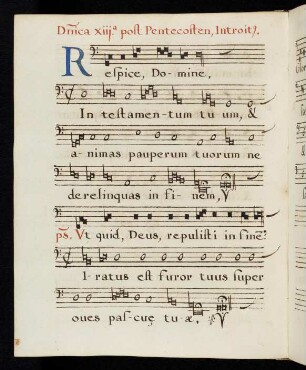 Dñica xiij.ª post Pentecosten, Introitꝰ.
Respice, Domine,
In testamen-tum tuum, &
a-nimas pauperum tuorum ne
derelinquas in fi-nem, ℣
ps. Vt quid, Deus, repulisti in finē?
I-ratus est furor tuus super
oues pas-cuę tu-æ.